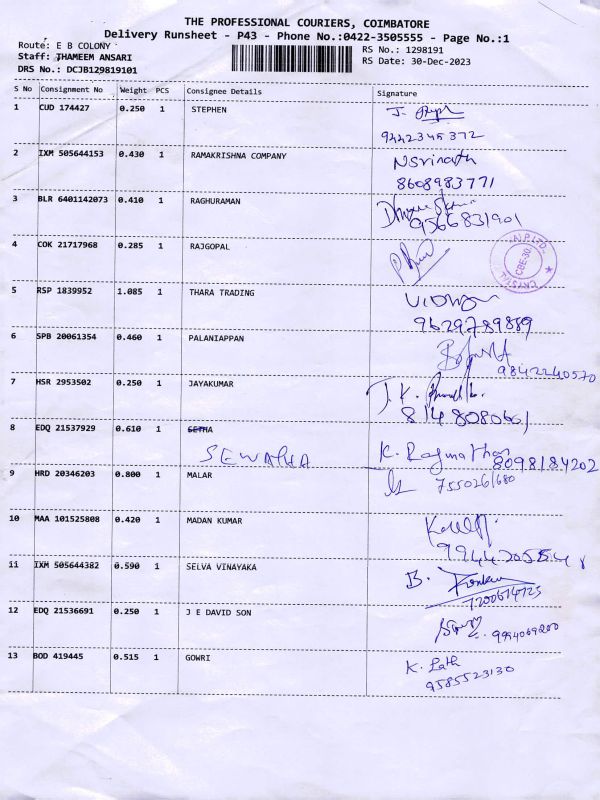 THE PROFESSIONAL COURIERS, COIMBATORE
Delivery Runsheet - P43 - Phone No.:0422-3505555 - Page No.:1
Route: E B COLONY RS No.: 1298191
Staff: THAMEEM ANSARI RS Date: 30-Dec-2023
DRS No.: DCJB129819101
S No Consignment No Weight PCS Consignee Details Signature
1 CUD 174427 0.250 1 STEPHEN
9442345372
2 IXM 505644153 0.430 1 RAMAKRISHNA COMPANY NSrinath
8608983771
3 BLR 6401142073 0.410 1 RAGHURAMAN
9566831901
4 COK 21717968 0.285 1 RAJGOPAL
5 RSP 1839952 1.085 1 THARA TRADING
9629789889
6 SPB 20061354 0.460 1 PALANIAPPAN
9842240570
7 HSR 2953502 0.250 1 JAYAKUMAR J. K.
8 EDQ 21537929 0.610 1 SETHA
K. Ragunathan 8098184202
9 HRD 20346203 0.800 1 MALAR
7550261680
10 MAA 101525808 0.420 1 MADAN KUMAR
11 IXM 505644382 0.590 1 SELVA VINAYAKA B.
12 EDQ 21536691 0.250 1 J E DAVID SON
13 BOD 419445 0.515 1 GOWRI K. Lath
9585523130